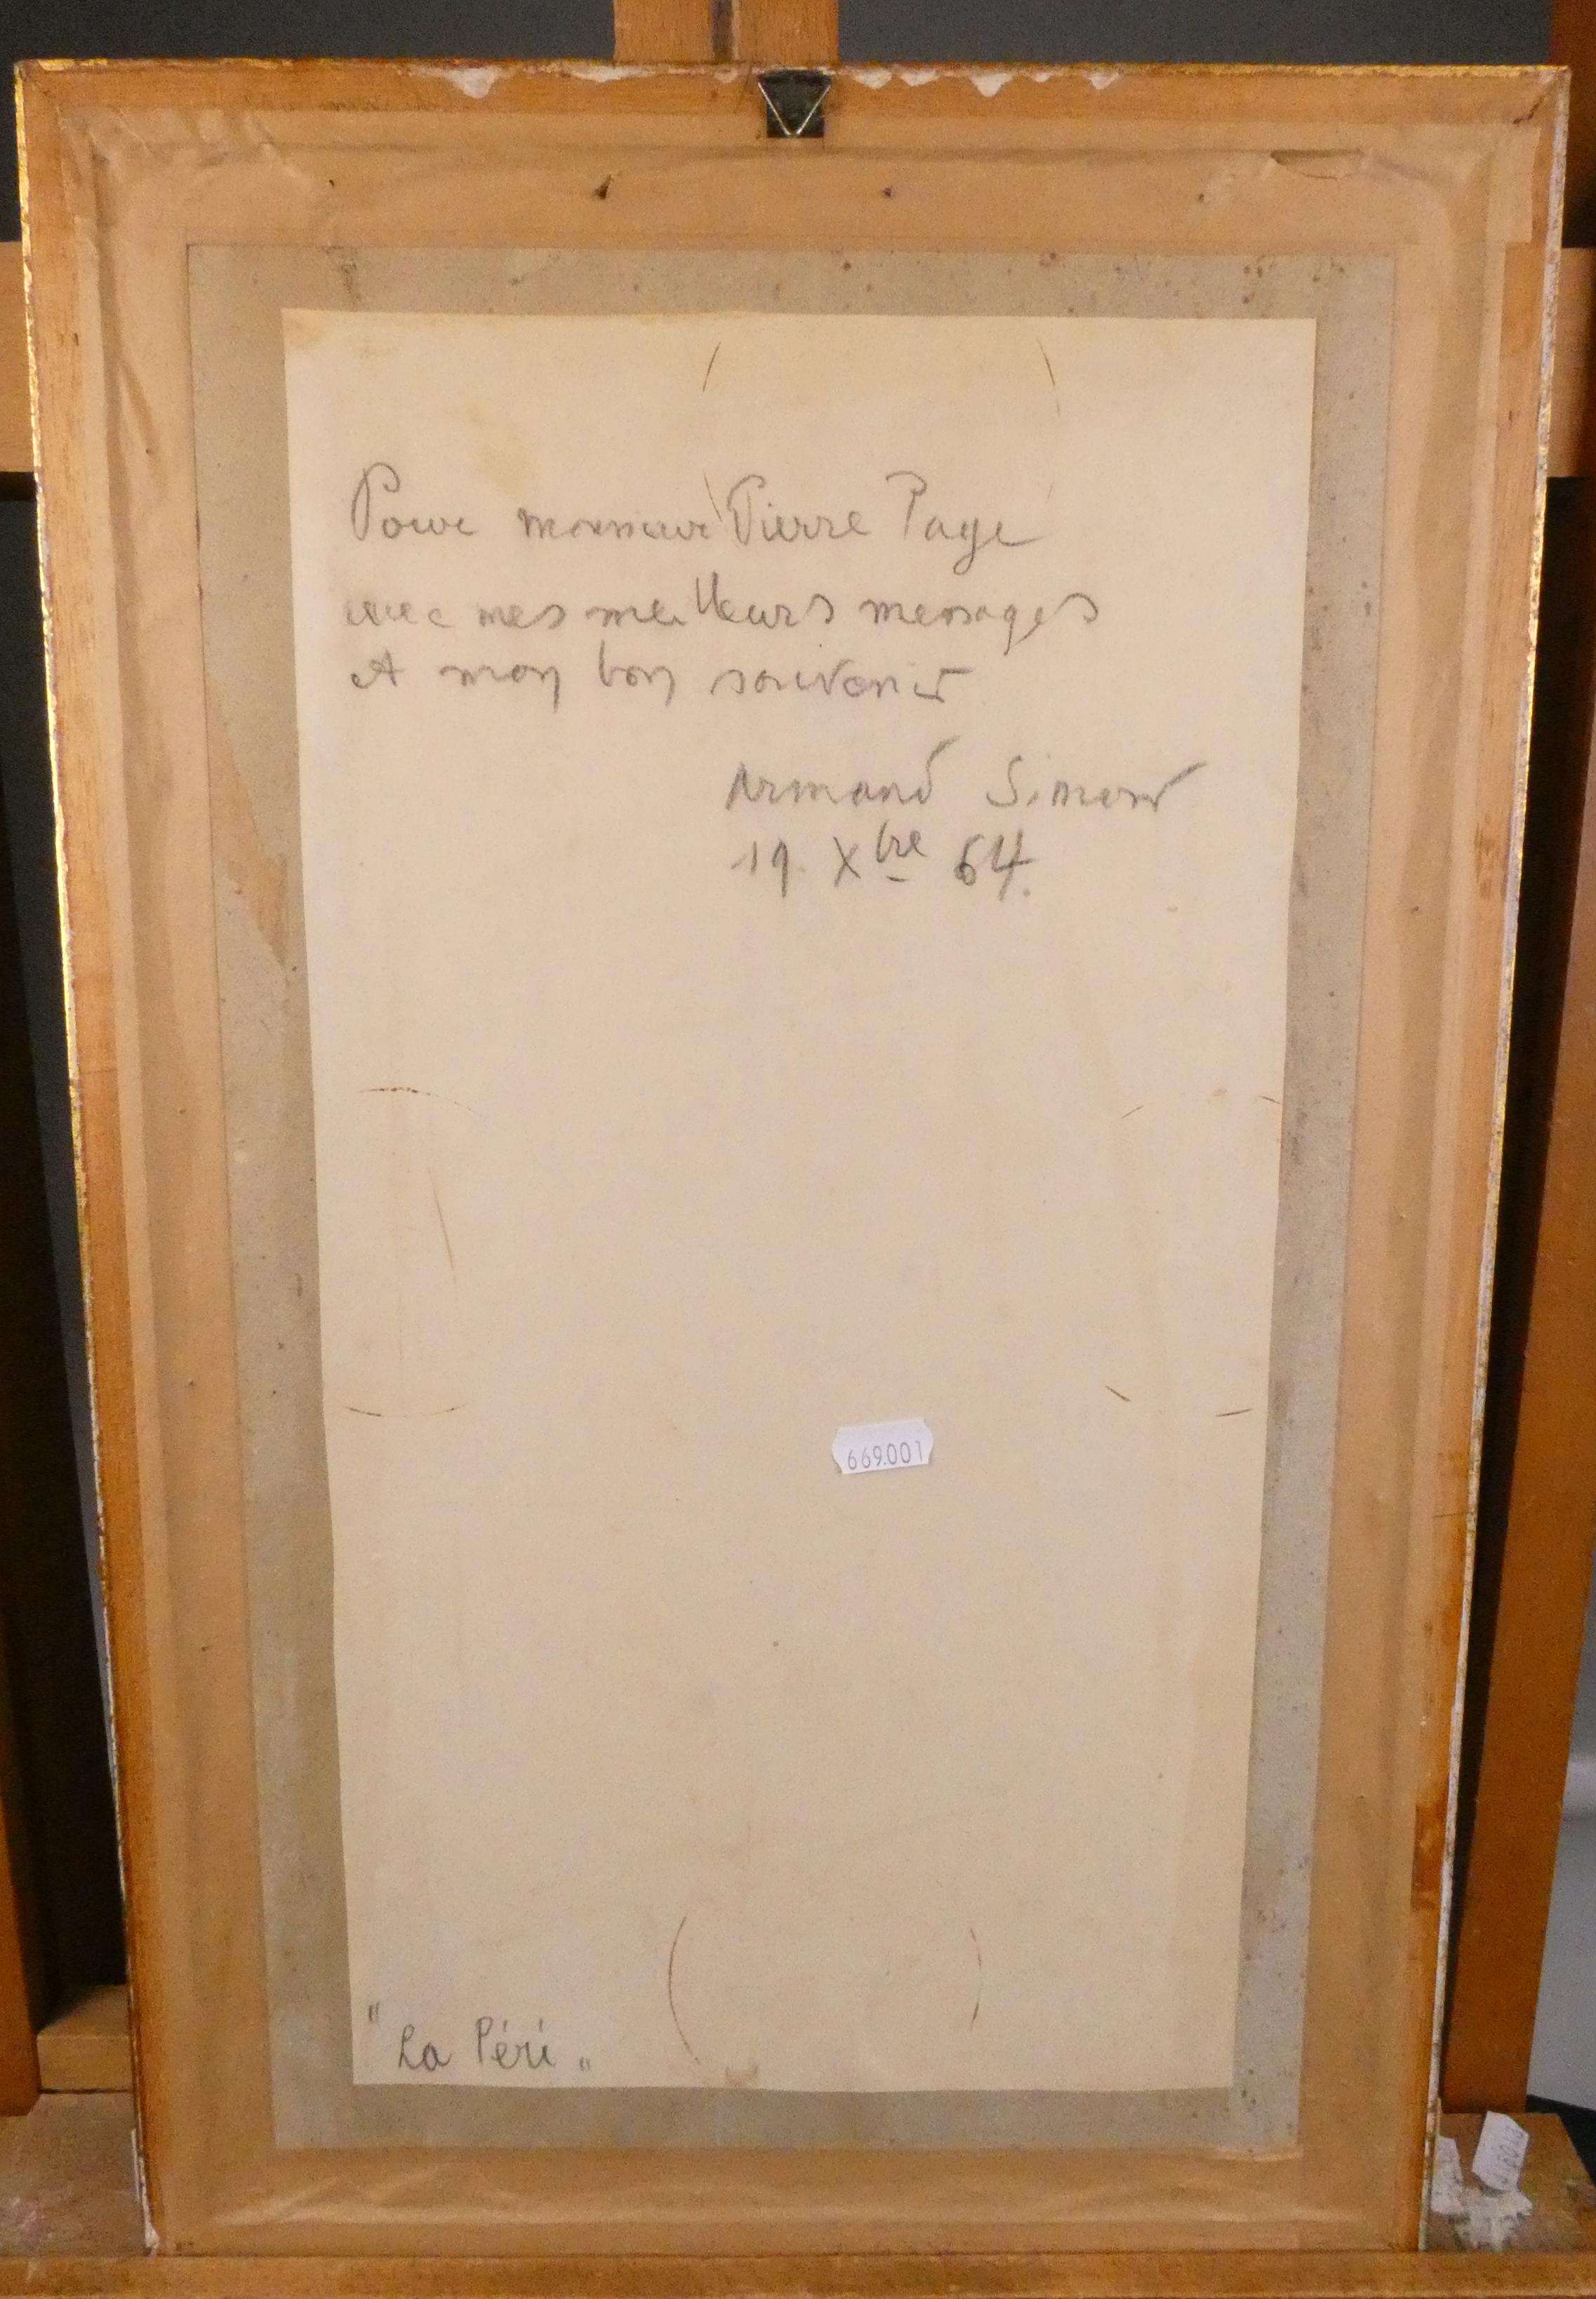 Pour monsieur Pierre Page
avec mes meilleurs messages
et mon bon souvenir
Armand Simon
19. Xbre 64.
669.001
"La Péri"